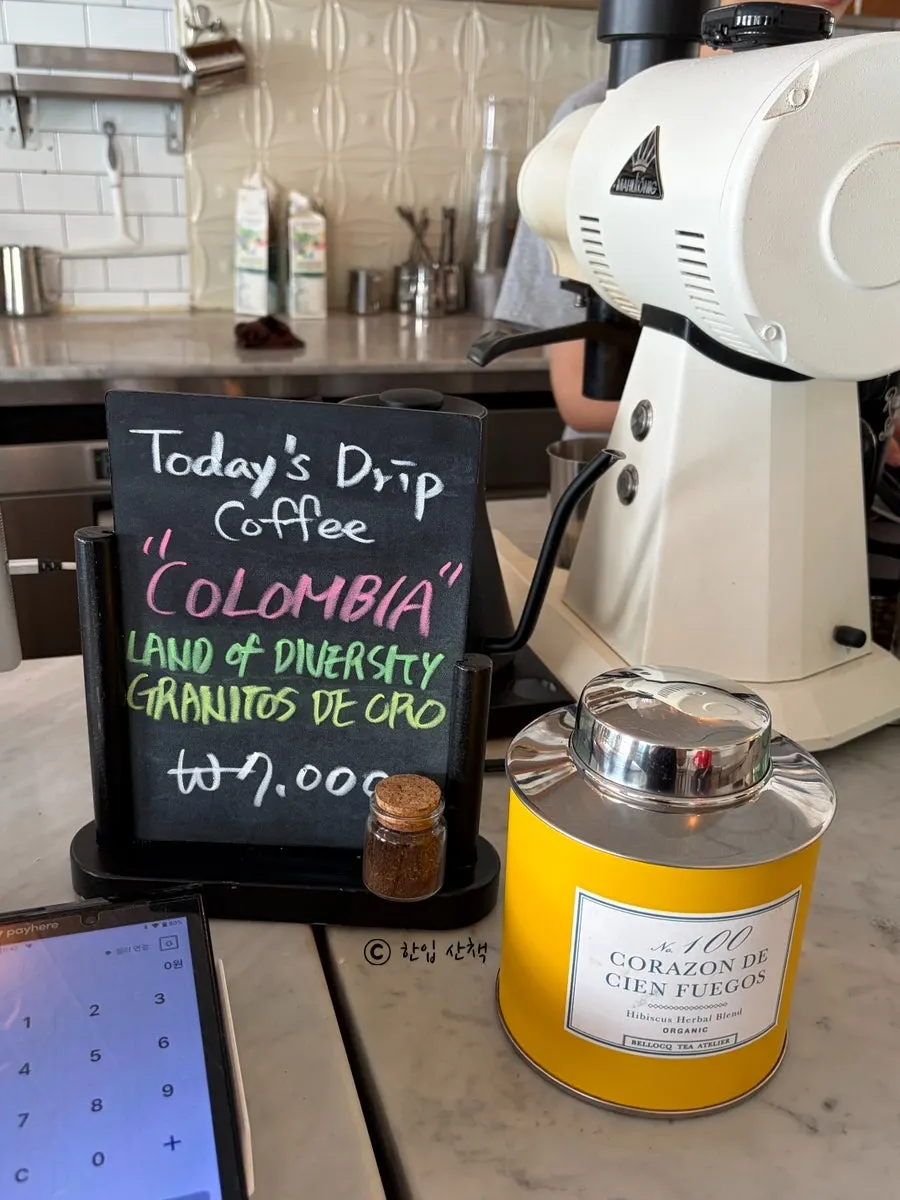 MAHLKÖNIG
Today's Drip
Coffee
"COLOMBIA"
LAND of DIVERSITY
GRANITOS DE ORO
₩7.000
© 한입 산책
No. 100
CORAZON DE
CIEN FUEGOS
Hibiscus Herbal Blend
ORGANIC
BELLOCQ TEA ATELIER
payhere
80%
0원
1 2 3
4 5 6
7 8 9
C 0 +